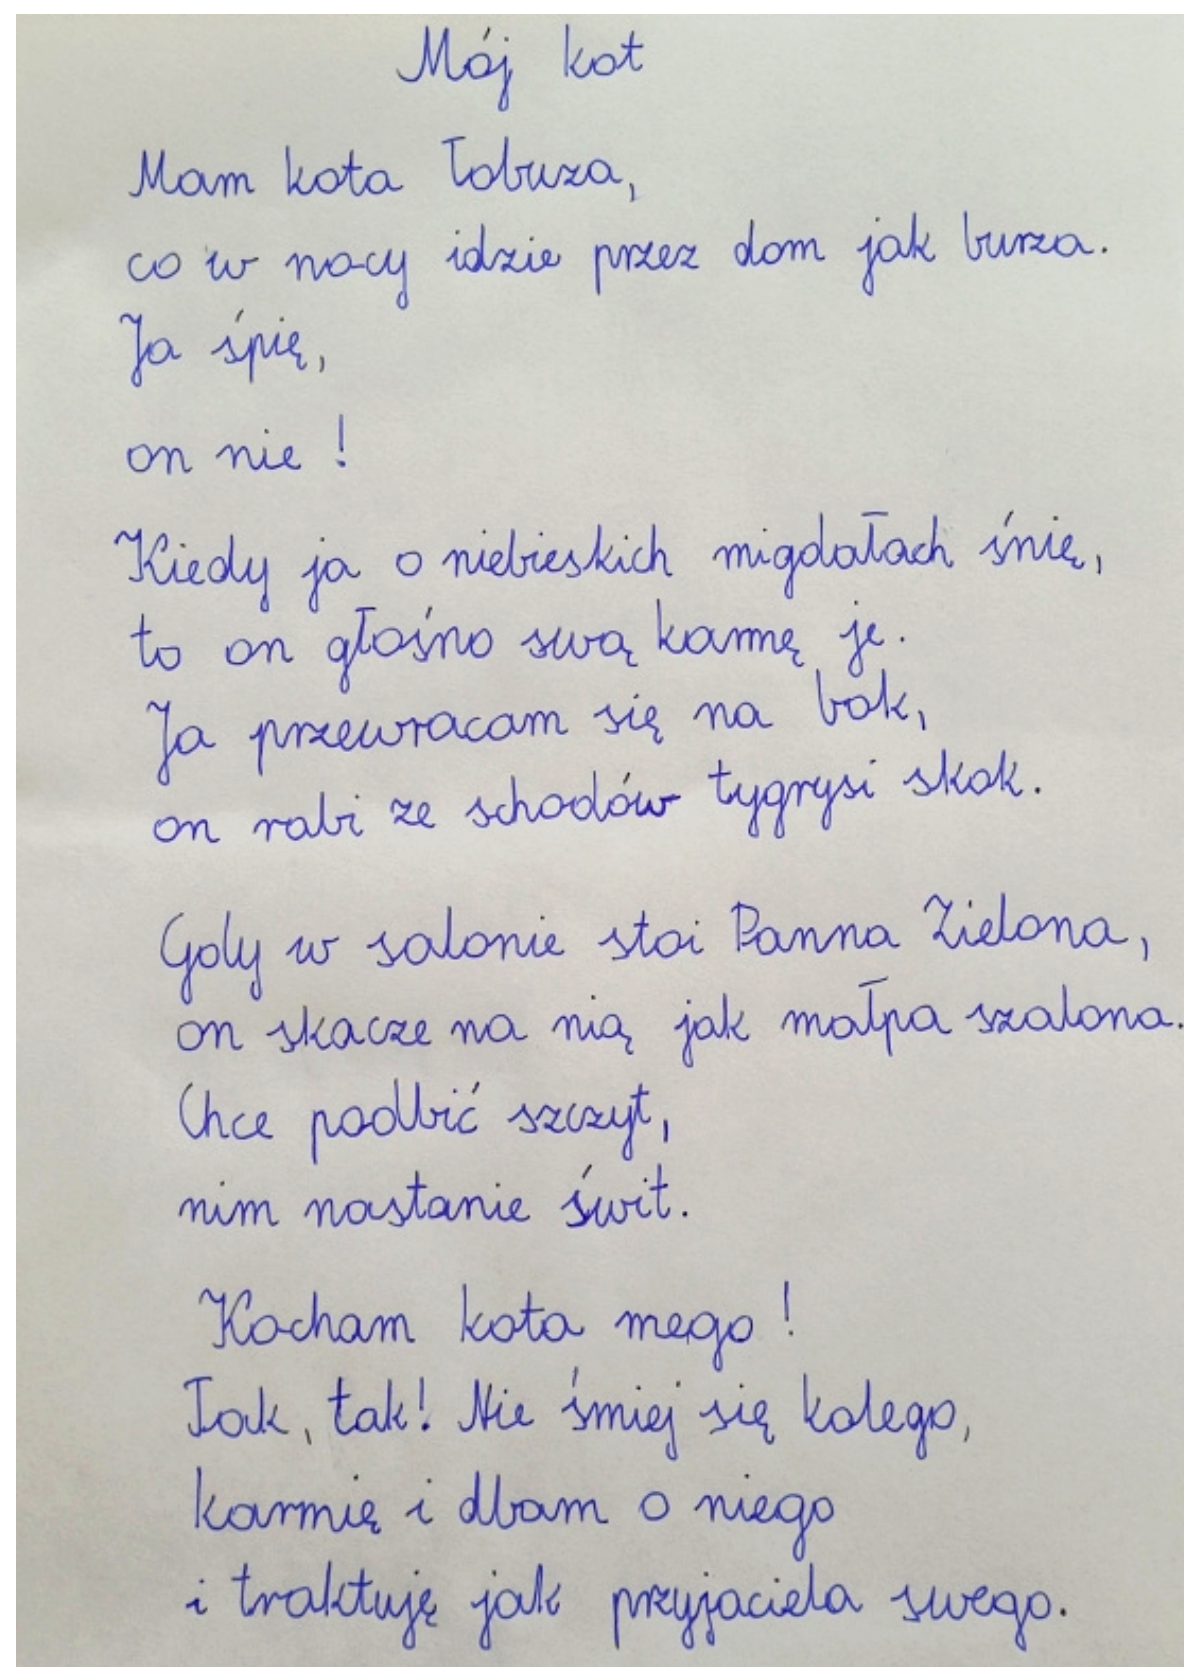 Mój kot
Mam kota łobuza,
co w nocy idzie przez dom jak burza.
Ja śpię,
on nie!
Kiedy ja o niebieskich migdałach śnię,
to on głośno swą karmę je.
Ja przewracam się na bok,
on robi ze schodów tygrysi skok.
Gdy w salonie stoi Panna Zielona,
on skacze na nią jak małpa szalona.
Chce podbić szczyt,
nim nastanie świt.
Kocham kota mego!
Tak, tak! Nie śmiej się kolego,
karmię i dbam o niego
i traktuję jak przyjaciela swego.